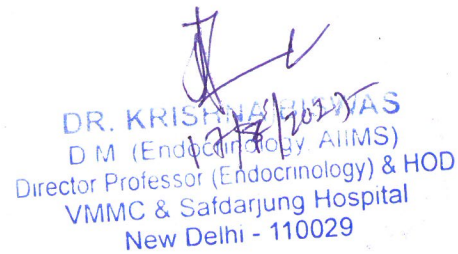 DR. KRISHNA BISWAS
17/8/2025
D M (Endocrinology, AIIMS)
Director Professor (Endocrinology) & HOD
VMMC & Safdarjung Hospital
New Delhi - 110029